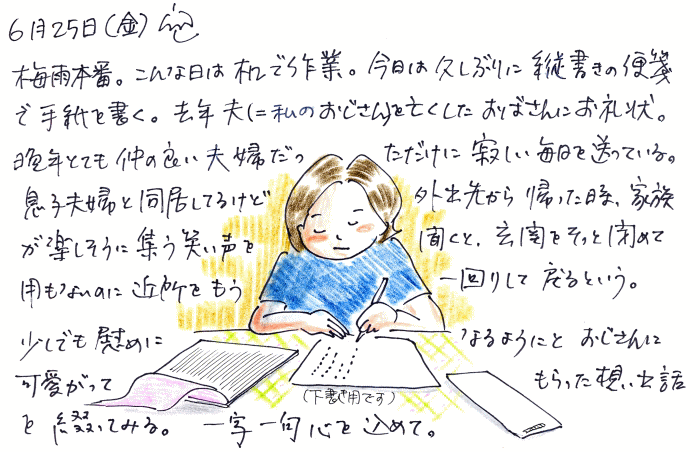 6月25日(金)
梅雨本番。こんな日は机で作業。今日は久しぶりに縦書きの便箋
で手紙を書く。去年夫(=私のおじさん)を亡くしたおばさんにお礼状。
晩年とても仲の良い夫婦だっただけに寂しい毎日を送っている。
息子夫婦と同居してるけど外出先から帰った時、家族
が楽しそうに集う笑い声を聞くと、玄関をそっと閉めて
用もないのに近所をもう一回りして戻るという。
少しでも慰めになるようにとおじさんに
可愛がってもらった想い出話
(下書き用です)
を綴ってみる。一字一句心を込めて。